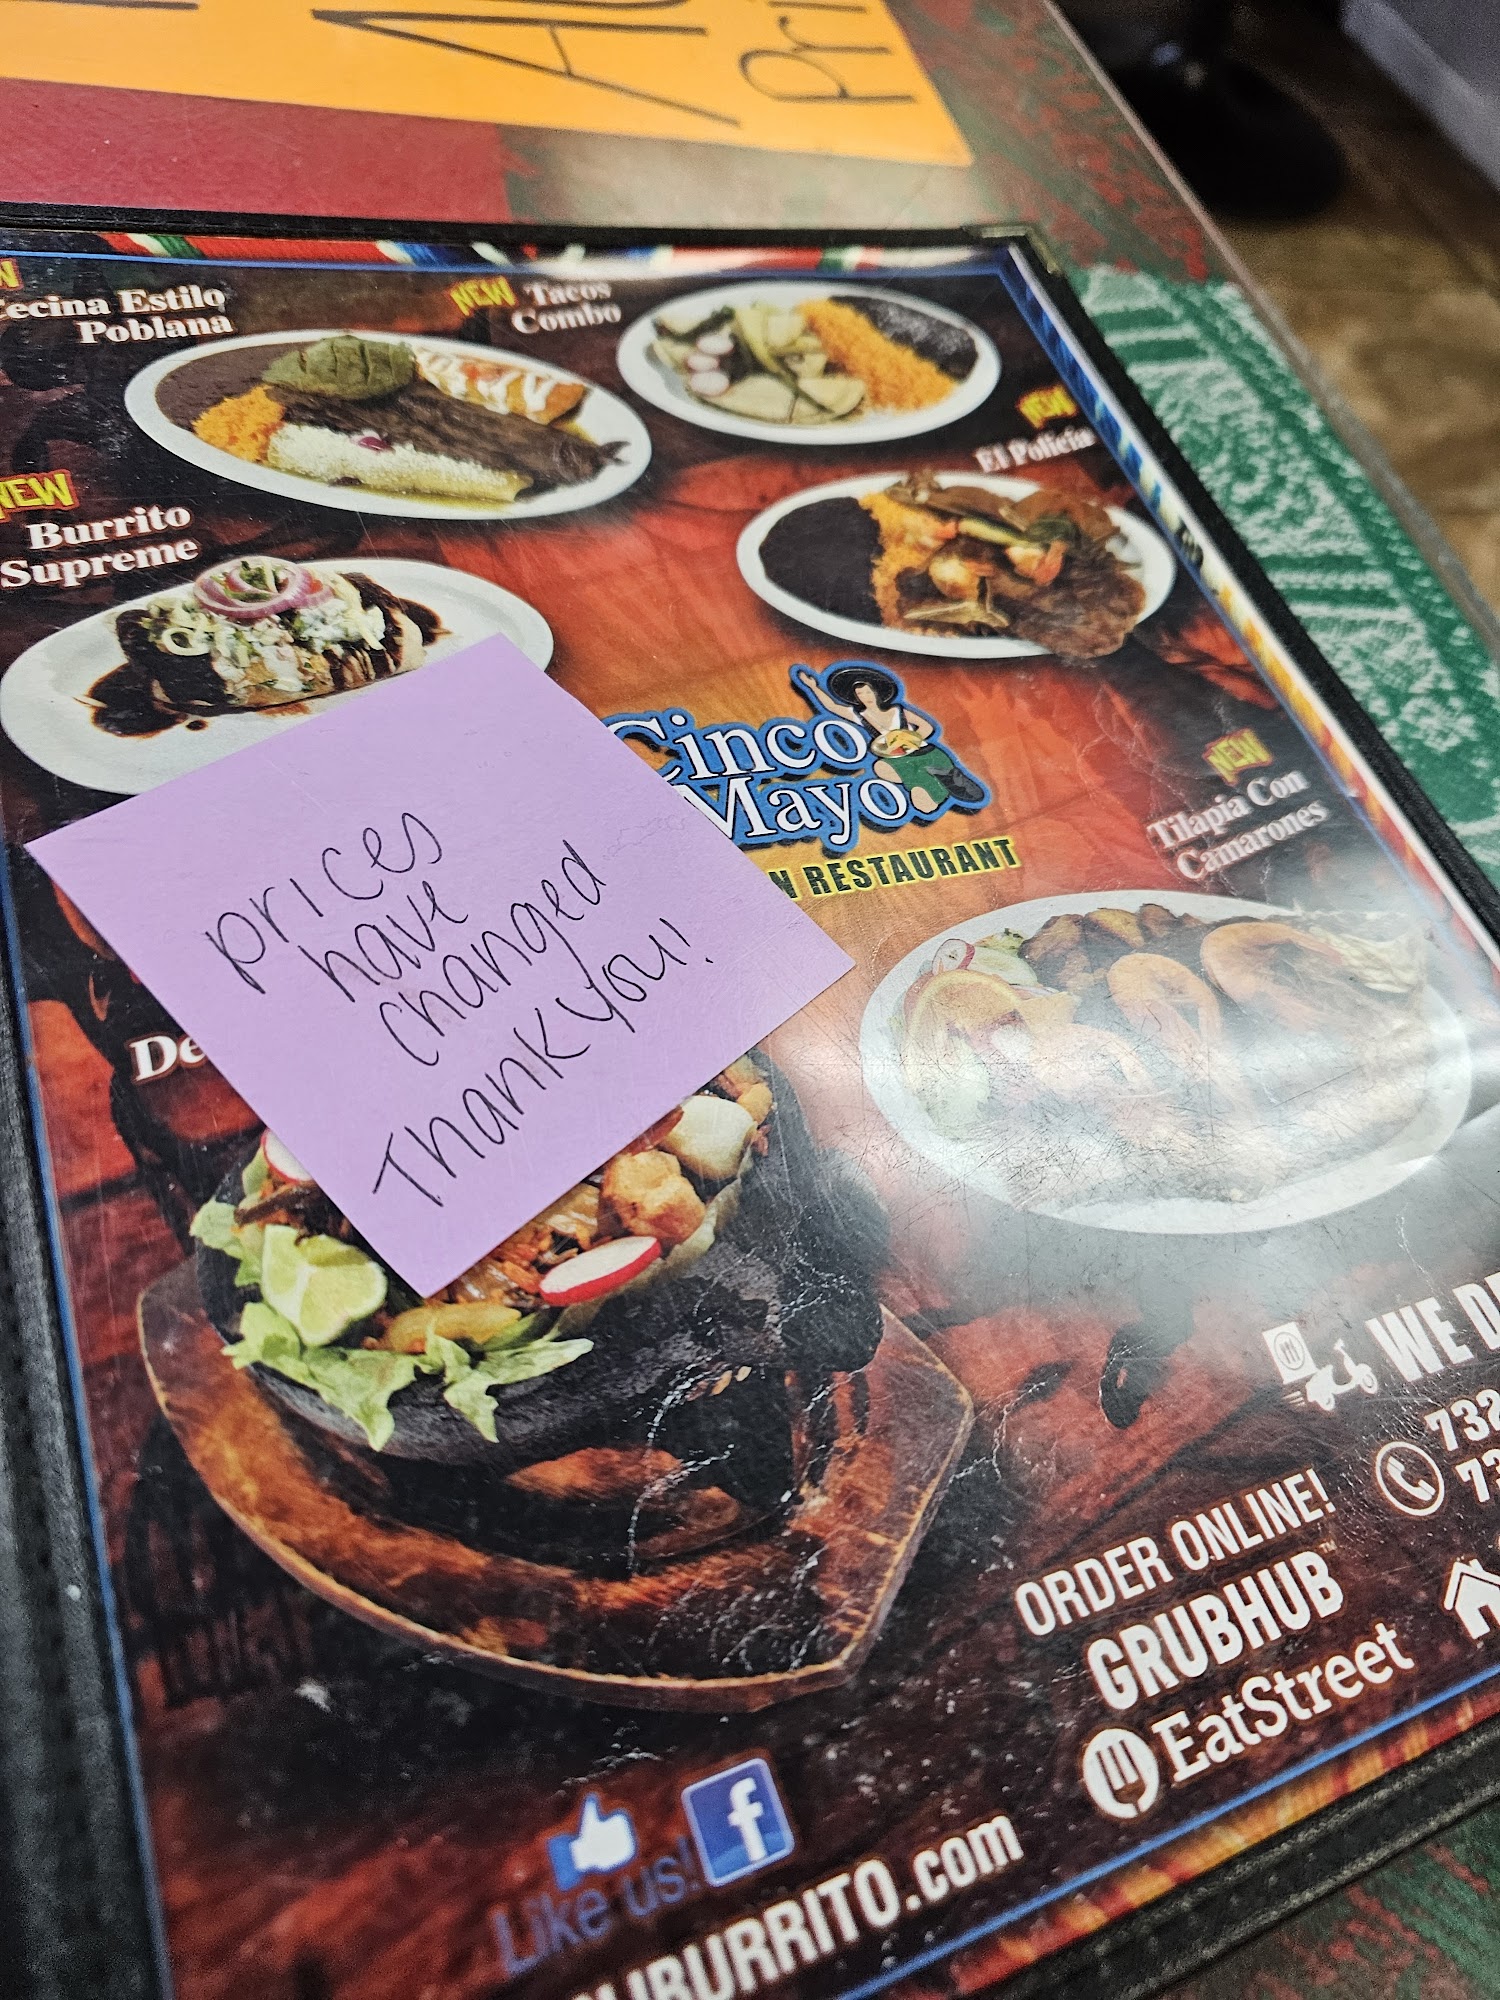 NEW
Cecina Estilo
Poblana
NEW Tacos
Combo
NEW
El Policia
NEW
Burrito
Supreme
Cinco
Mayo
RESTAURANT
NEW
Tilapia Con
Camarones
prices
have
changed
Thank you!
WE
ORDER ONLINE!
GRUBHUB™
EatStreet
Like us!
BURRITO.com